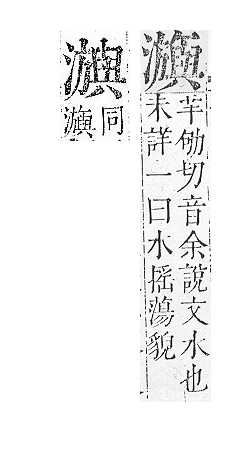 羊劬切音余說文水也
未詳一曰水搖蕩貌
同